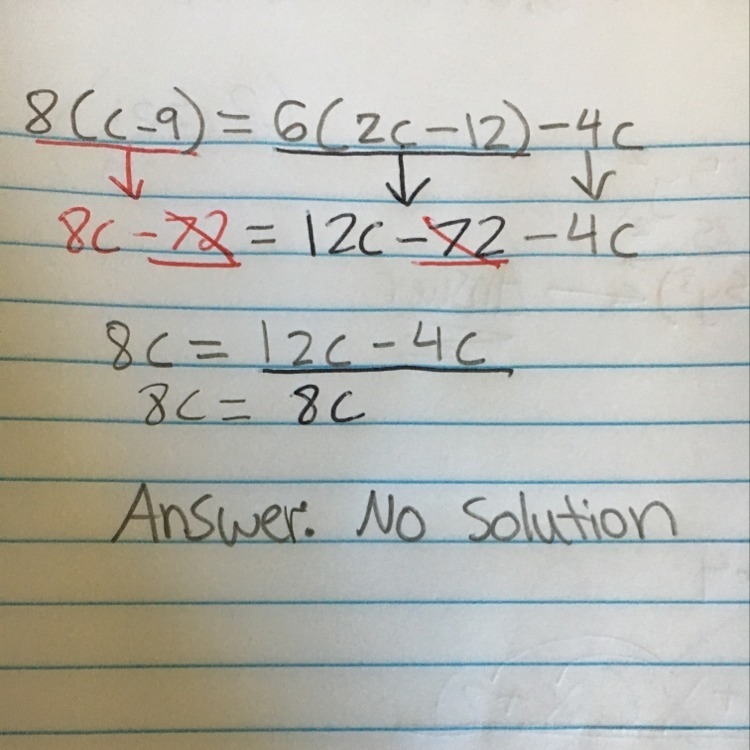 8(c-9) = 6(2c-12)-4c
8c-72 = 12c-72-4c
8c = 12c-4c
8c = 8c
Answer: No solution